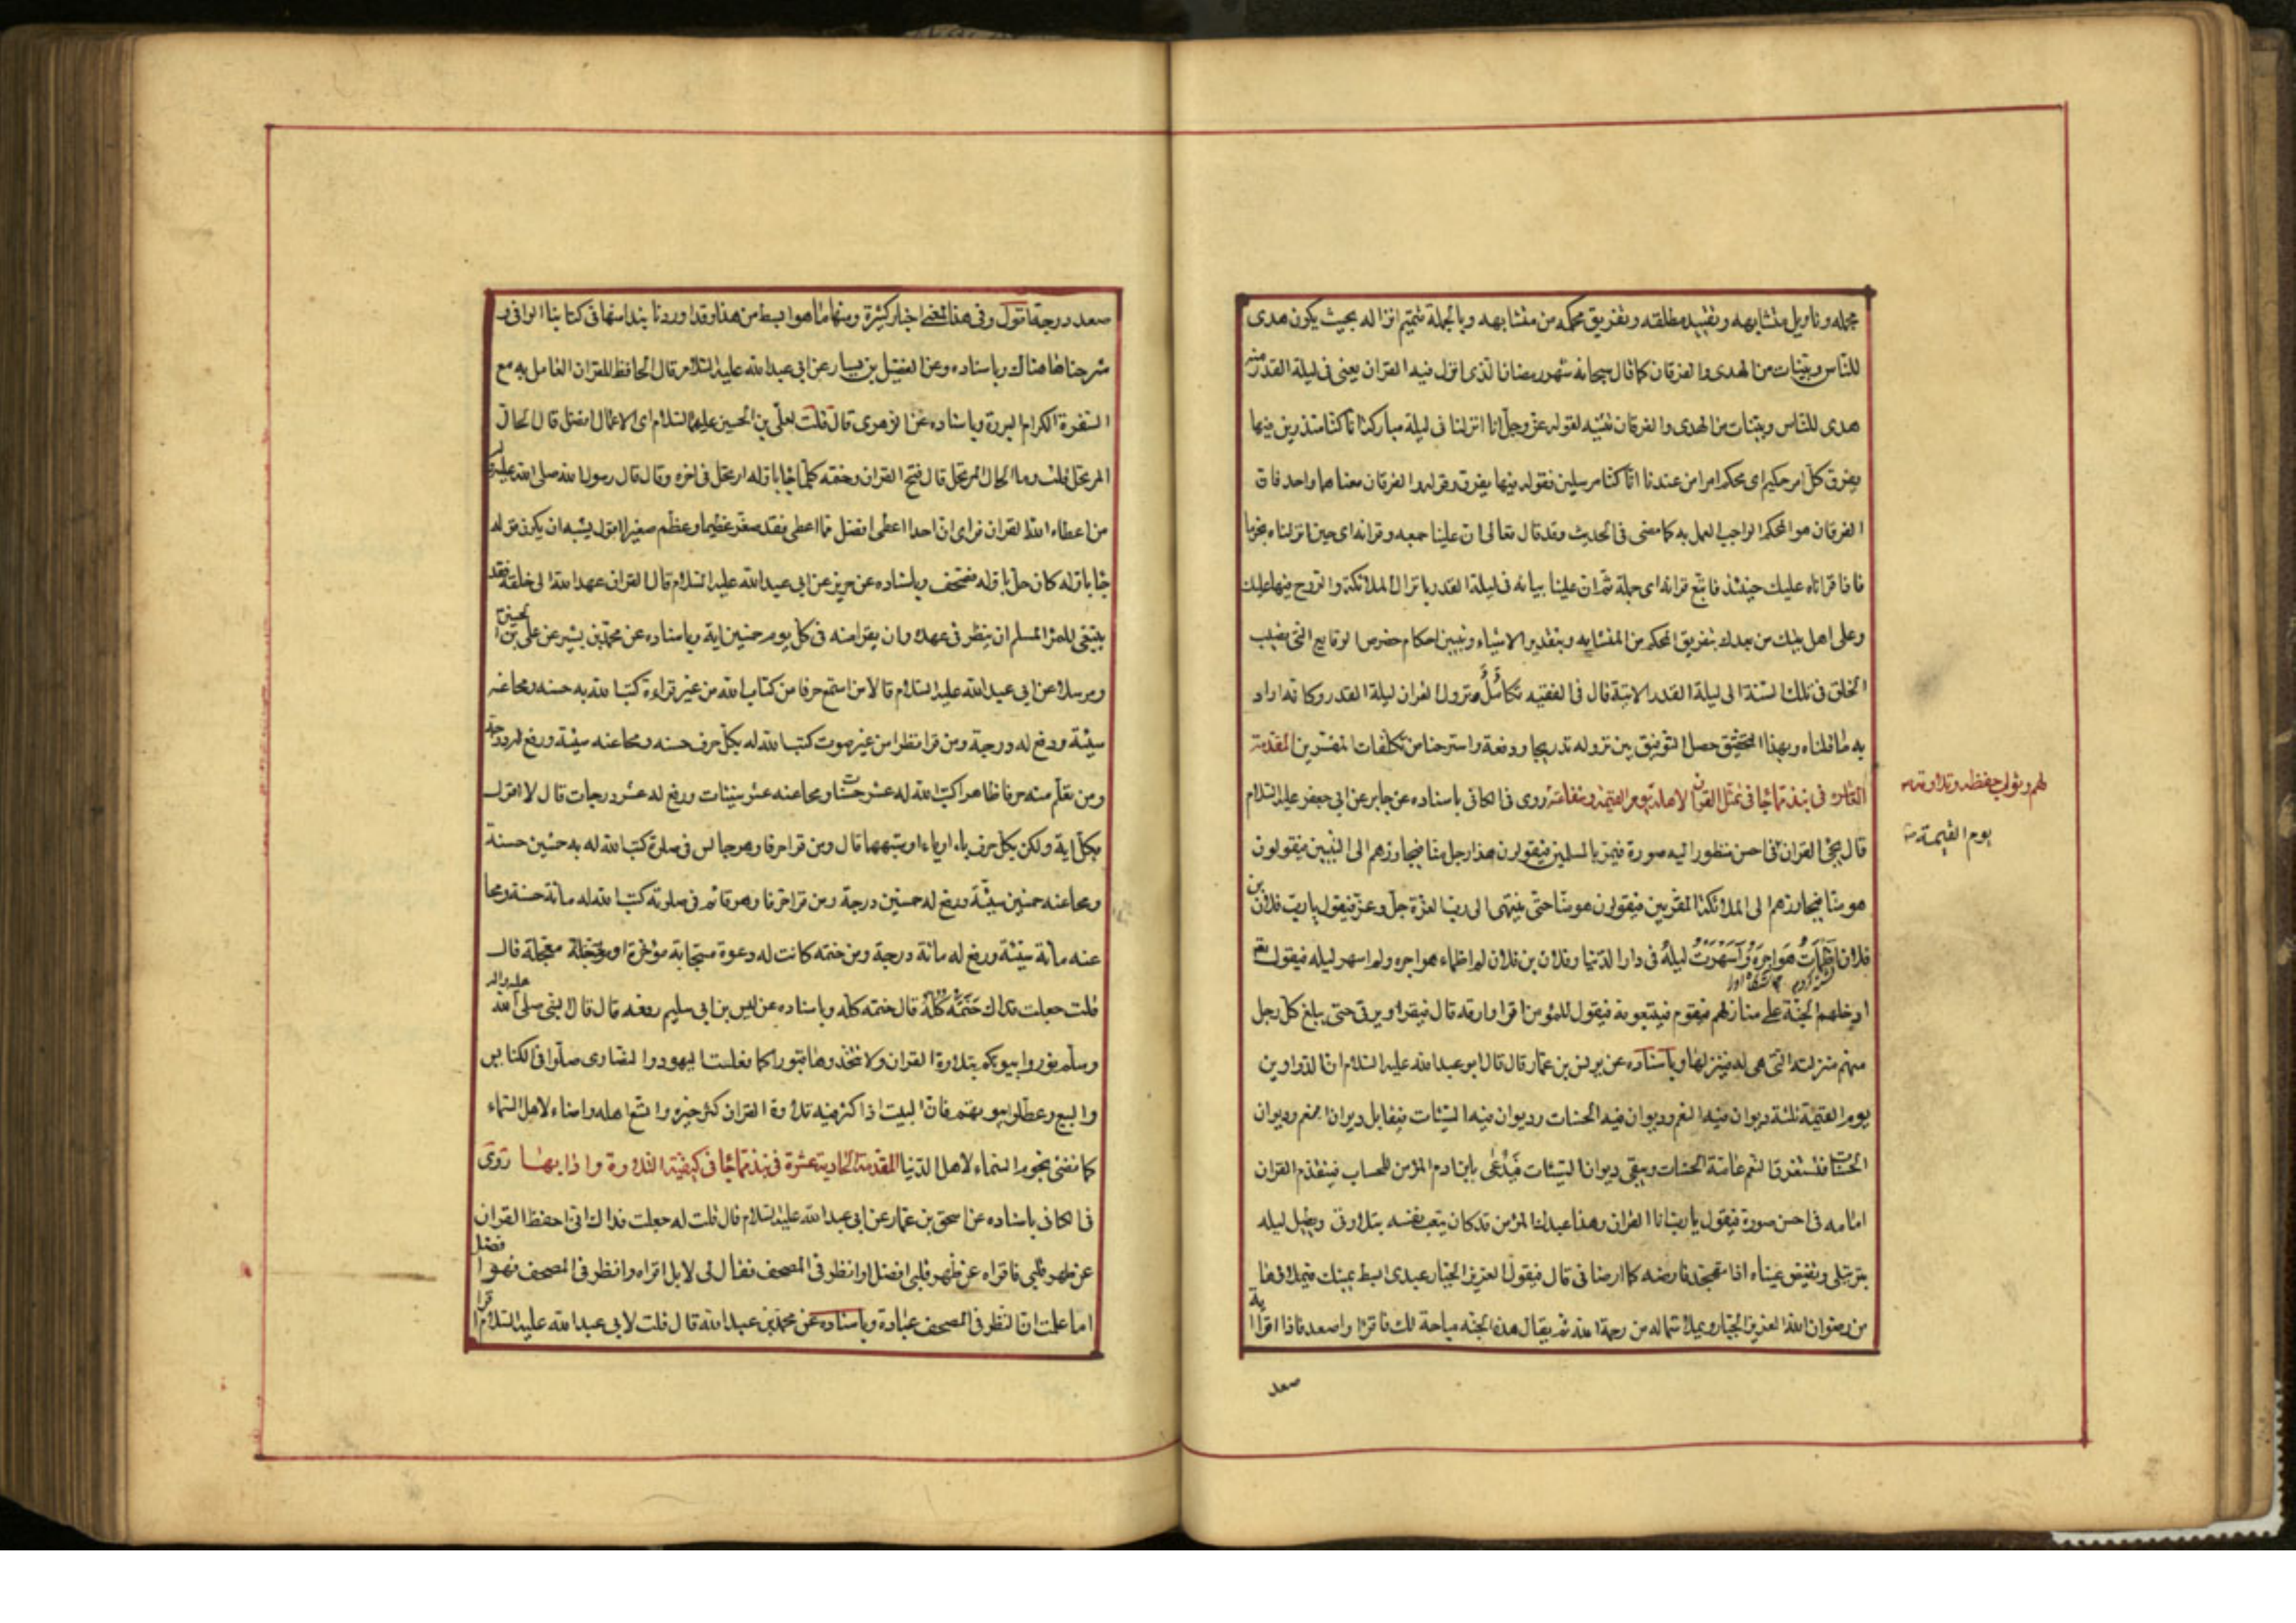 مجمله وتاويل متشابهه وتقييد مطلقه وتفريق محكمه من متشابهه وبالجملة تتميم انزاله بحيث يكون هدى
للناس وبينات من الهدى والفرقان كما قال سبحانه شهر رمضان الذى انزل فيه القران يعنى فى ليلة القدر منه
هدى للناس وبينات من الهدى والفرقان تثنيه لقوله عز وجل انا انزلناه فى ليلة مباركة انا كنا منذرين فيها
يفرق كل امر حكيم اى محكم امرا من عندنا انا كنا مرسلين فقوله فيها يفرق وقوله والفرقان معناهما واحد فان
الفرقان هو المحكم الواجب العمل به كما مضى فى الحديث وقد قال تعالى ان علينا جمعه وقرانه اى حين انزلناه نجوما
فاذا قراناه عليك حينئذ فاتبع قرانه اى جملة ثم ان علينا بيانه فى ليلة القدر بانزال الملائكة والروح فيها عليك
وعلى اهل بيتك من بعدك بتفريق المحكم من المتشابه وبتقدير الاشياء وتبيين احكام خصوص الوقايع التى يصيب
الخلق فى تلك السنة الى ليلة القدر الاتية قال فى الفقيه تكامل نزول القران ليلة القدر وكانه اراد
به ما قلناه وبهذا التحقيق حصل التوفيق بين نزوله تدريجا ودفعة واسترحنا من تكلفات المفسرين المقدمة
العاشرة فى نبذ مما جا فى تمثل القران لاهله يوم القيمة وشفاعته روى فى الكافى باسناده عن جابر عن ابى جعفر عليه السلام
لهم وثواب حفظه وتلاوته
يوم القيمة
قال يجئ القران فى احسن منظور اليه صورة فيمر بالمسلمين فيقولون هذا رجل منا فيجاوزهم الى النبيين فيقولون
هو منا فيجاوزهم الى الملائكة المقربين فيقولون هو منا حتى ينتهى الى رب العزة جل وعز فيقول يا رب فلان بن
فلان اظمات هواجره واسهرت ليله فى دار الدنيا وفلان بن فلان لم اظماء هواجره ولم اسهر ليله فيقول تع
ادخلهم الجنة على منازلهم فيقوم فيتبعونه فيقول للمؤمن اقرا وارقه قال فيقرا ويرقى حتى يبلغ كل رجل
منهم منزلته التى هى له فينزلها وباسناده عن يونس بن عمار قال قال ابو عبد الله عليه السلام ان الدواوين
يوم القيمة ثلثة ديوان فيه النعم وديوان فيه الحسنات وديوان فيه السيئات فيقابل ديوان النعم وديوان
الحسنات فتستغرق النعم عامة الحسنات ويبقى ديوان السيئات فيدعى بابن ادم المؤمن للحساب فيتقدم القران
امامه فى احسن صورة فيقول يا رب انا القران وهذا عبدك المؤمن قد كان يتعب نفسه بتلاوتى ويطيل ليله
بترتيلى وتفيض عيناه اذا تهجد فارضه كما ارضانى قال فيقول العزيز الجبار عبدى ابسط يمينك فيملاؤها
من رضوان الله العزيز الجبار ويملا شماله من رحمة الله ثم يقال هذه الجنة مباحة لك فاقرا واصعد فاذا اقرا اية
صعد
صعد درجة اقول وفى هذا المعنى اخبار كثيرة ومنها ما هو ابسط من هذا وقد اوردنا نبذا منها فى كتابنا الوافى و
شرحناها هناك وباسناده وعن الفضيل بن يسار عن ابى عبد الله عليه السلام قال الحافظ للقران العامل به مع
السفرة الكرام البررة وباسناده عن الزهرى قال قلت لعلى بن الحسين عليهما السلام اى الاعمال افضل قال الحال
المرتحل قلت وما الحال المرتحل قال فتح القران وختمه كلما جا باوله ارتحل فى اخره وقال قال رسول الله صلى الله عليه
من اعطاه الله القران فراى ان احدا اعطى افضل مما اعطى فقد صغر عظيما وعظم صغيرا اقول يشبه ان يكون قوله
جا باوله كان حل باوله فصحف وباسناده عن حريز عن ابى عبد الله عليه السلام قال القران عهد الله الى خلقه فقد
ينبغى للمرء المسلم ان ينظر فى عهده وان يقرا منه فى كل يوم خمسين اية وباسناده عن محمد بن بشير عن على بن الحسين
ومرسلا عن ابى عبد الله عليه السلام قالا من استمع حرفا من كتاب الله من غير قراءة كتب الله به حسنه ومحا عنه
سيئة ورفع له درجة ومن قرا نظرا من غير صوت كتب الله له بكل حرف حسنه ومحا عنه سيئة ورفع له درجة
ومن تعلم منه حرفا ظاهرا كتب الله له عشر حسنات ومحا عنه عشر سيئات ورفع له عشر درجات قال لا اقول
بكل اية ولكن بكل حرف باء او ياء او شبهها قال ومن قرا حرفا وهو جالس فى صلوة كتب الله له به خمسين حسنة
ومحا عنه خمسين سيئة ورفع له خمسين درجة ومن قرا حرفا وهو قائم فى صلوته كتب الله له مائة حسنة ومحا
عنه مائة سيئة ورفع له مائة درجة ومن ختمه كانت له دعوة مستجابة مؤخرة او معجلة قال
قلت جعلت فداك ختمه كله قال ختمه كله وباسناده عن ليس بن ابى سليم رفعه قال قال النبى صلى الله عليه واله
وسلم نوروا بيوتكم بتلاوة القران ولا تتخذوها قبورا كما فعلت اليهود والنصارى صلوا فى الكنايس
والبيع وعطلوا بيوتهم فان البيت اذا كثر فيه تلاوة القران كثر خيره واتسع اهله واضاء لاهل السماء
كما تضئ نجوم السماء لاهل الدنيا المقدمة الحادية عشرة فى نبذ مما جا فى كيفية التلاوة وادابها روى
فى الكافى باسناده عن اسحق بن عمار عن ابى عبد الله عليه السلام قال قلت له جعلت فداك انى احفظ القران
عن ظهر قلبى فاقراه عن ظهر قلبى افضل او انظر فى المصحف فقال لى لا بل اقراه وانظر فى المصحف فهو افضل
اما علمت ان النظر فى المصحف عبادة وباسناده عن محمد بن عبد الله قال قلت لابى عبد الله عليه السلام اقرا